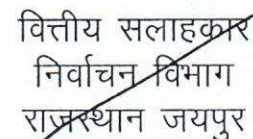 वित्तीय सलाहकार
निर्वाचन विभाग
राजस्थान जयपुर